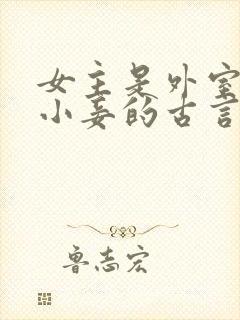 女主是外室
小妾的古言
鲁志宏